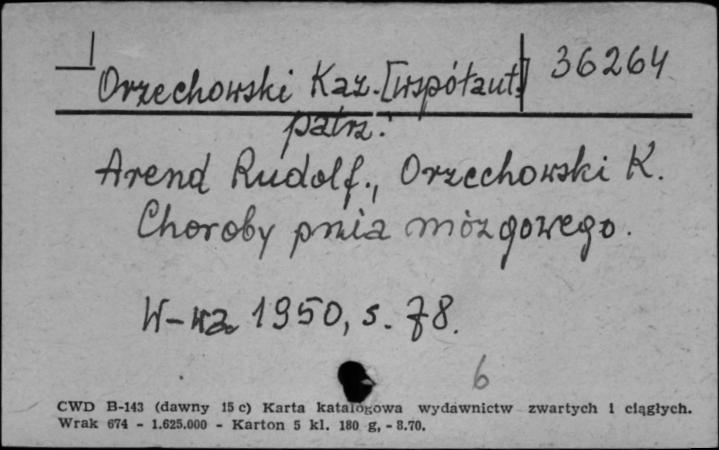 Orzechowski Kaz. [współaut.] 36264
patrz:
Arend Rudolf., Orzechowski K.
Choroby pnia mózgowego.
W-wa 1950, s. 78.
6
CWD B-143 (dawny 15 c) Karta katalogowa wydawnictw zwartych i ciągłych.
Wrak 674 - 1.625.000 - Karton 5 kl. 180 g, - 8.70.